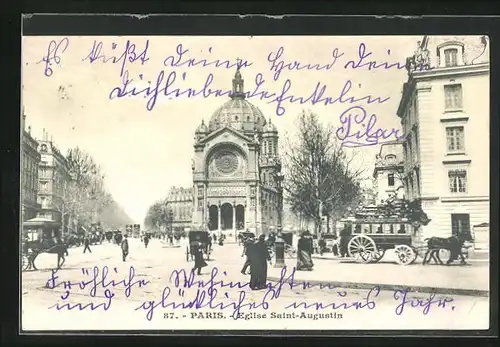 Es küßt Deine Hand Deine
Dichlieber denkenlin
Pilar
Fröhliche Weinachten
und glückliches neues Jahr.
37. - PARIS. - Eglise Saint-Augustin